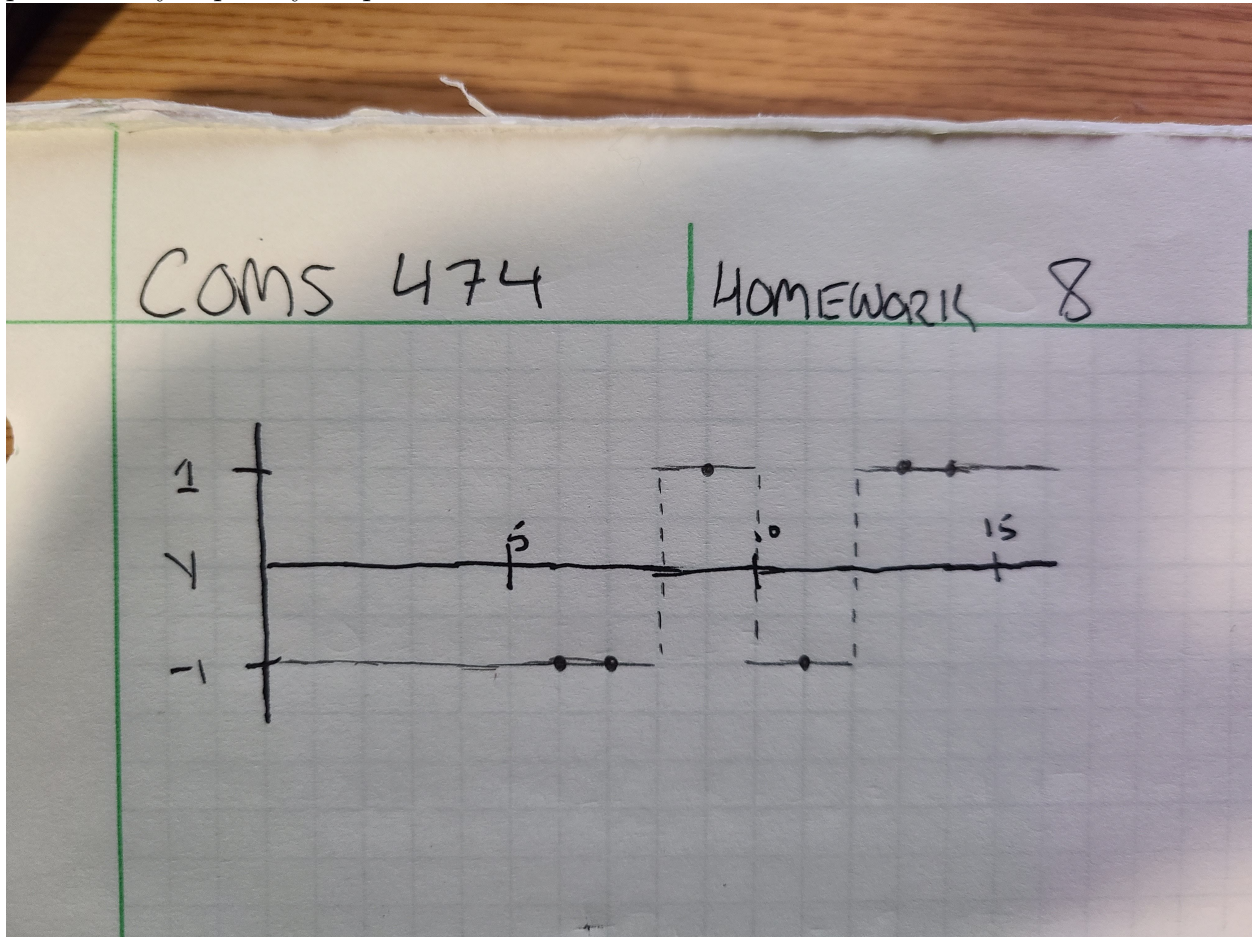 COMS 474
HOMEWORK 8
1
5
10
15
Y
-1